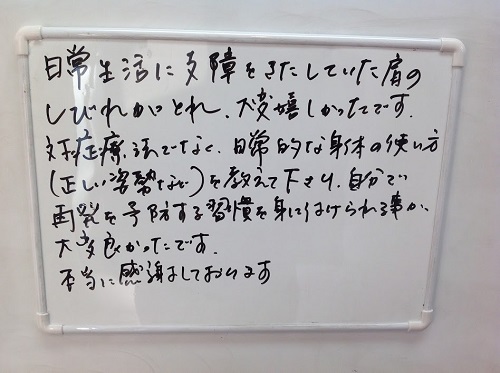 日常生活に支障をきたしていた肩の
しびれがとれ、大変嬉しかったです。
対症療法でなく、日常的な身体の使い方
(正しい姿勢など)を教えて下さり、自分で
再発を予防する習慣を身に付けられる事が、
大変良かったです。
本当に感謝しております